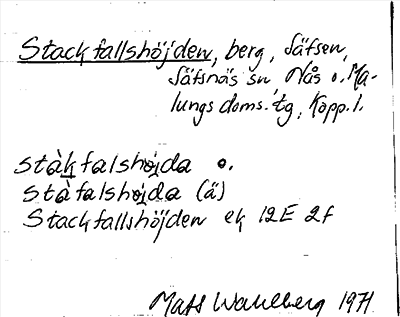 Stackfallshöjden, berg, Säfsen,
Säfsnäs sn, Nås o. Ma-
lungs doms. tg, Kopp. l.
stàkfalshöjda o.
stàfalshöjda (ä)
Stackfallshöjden ek 12E 2f
Mats Wahlberg 1971